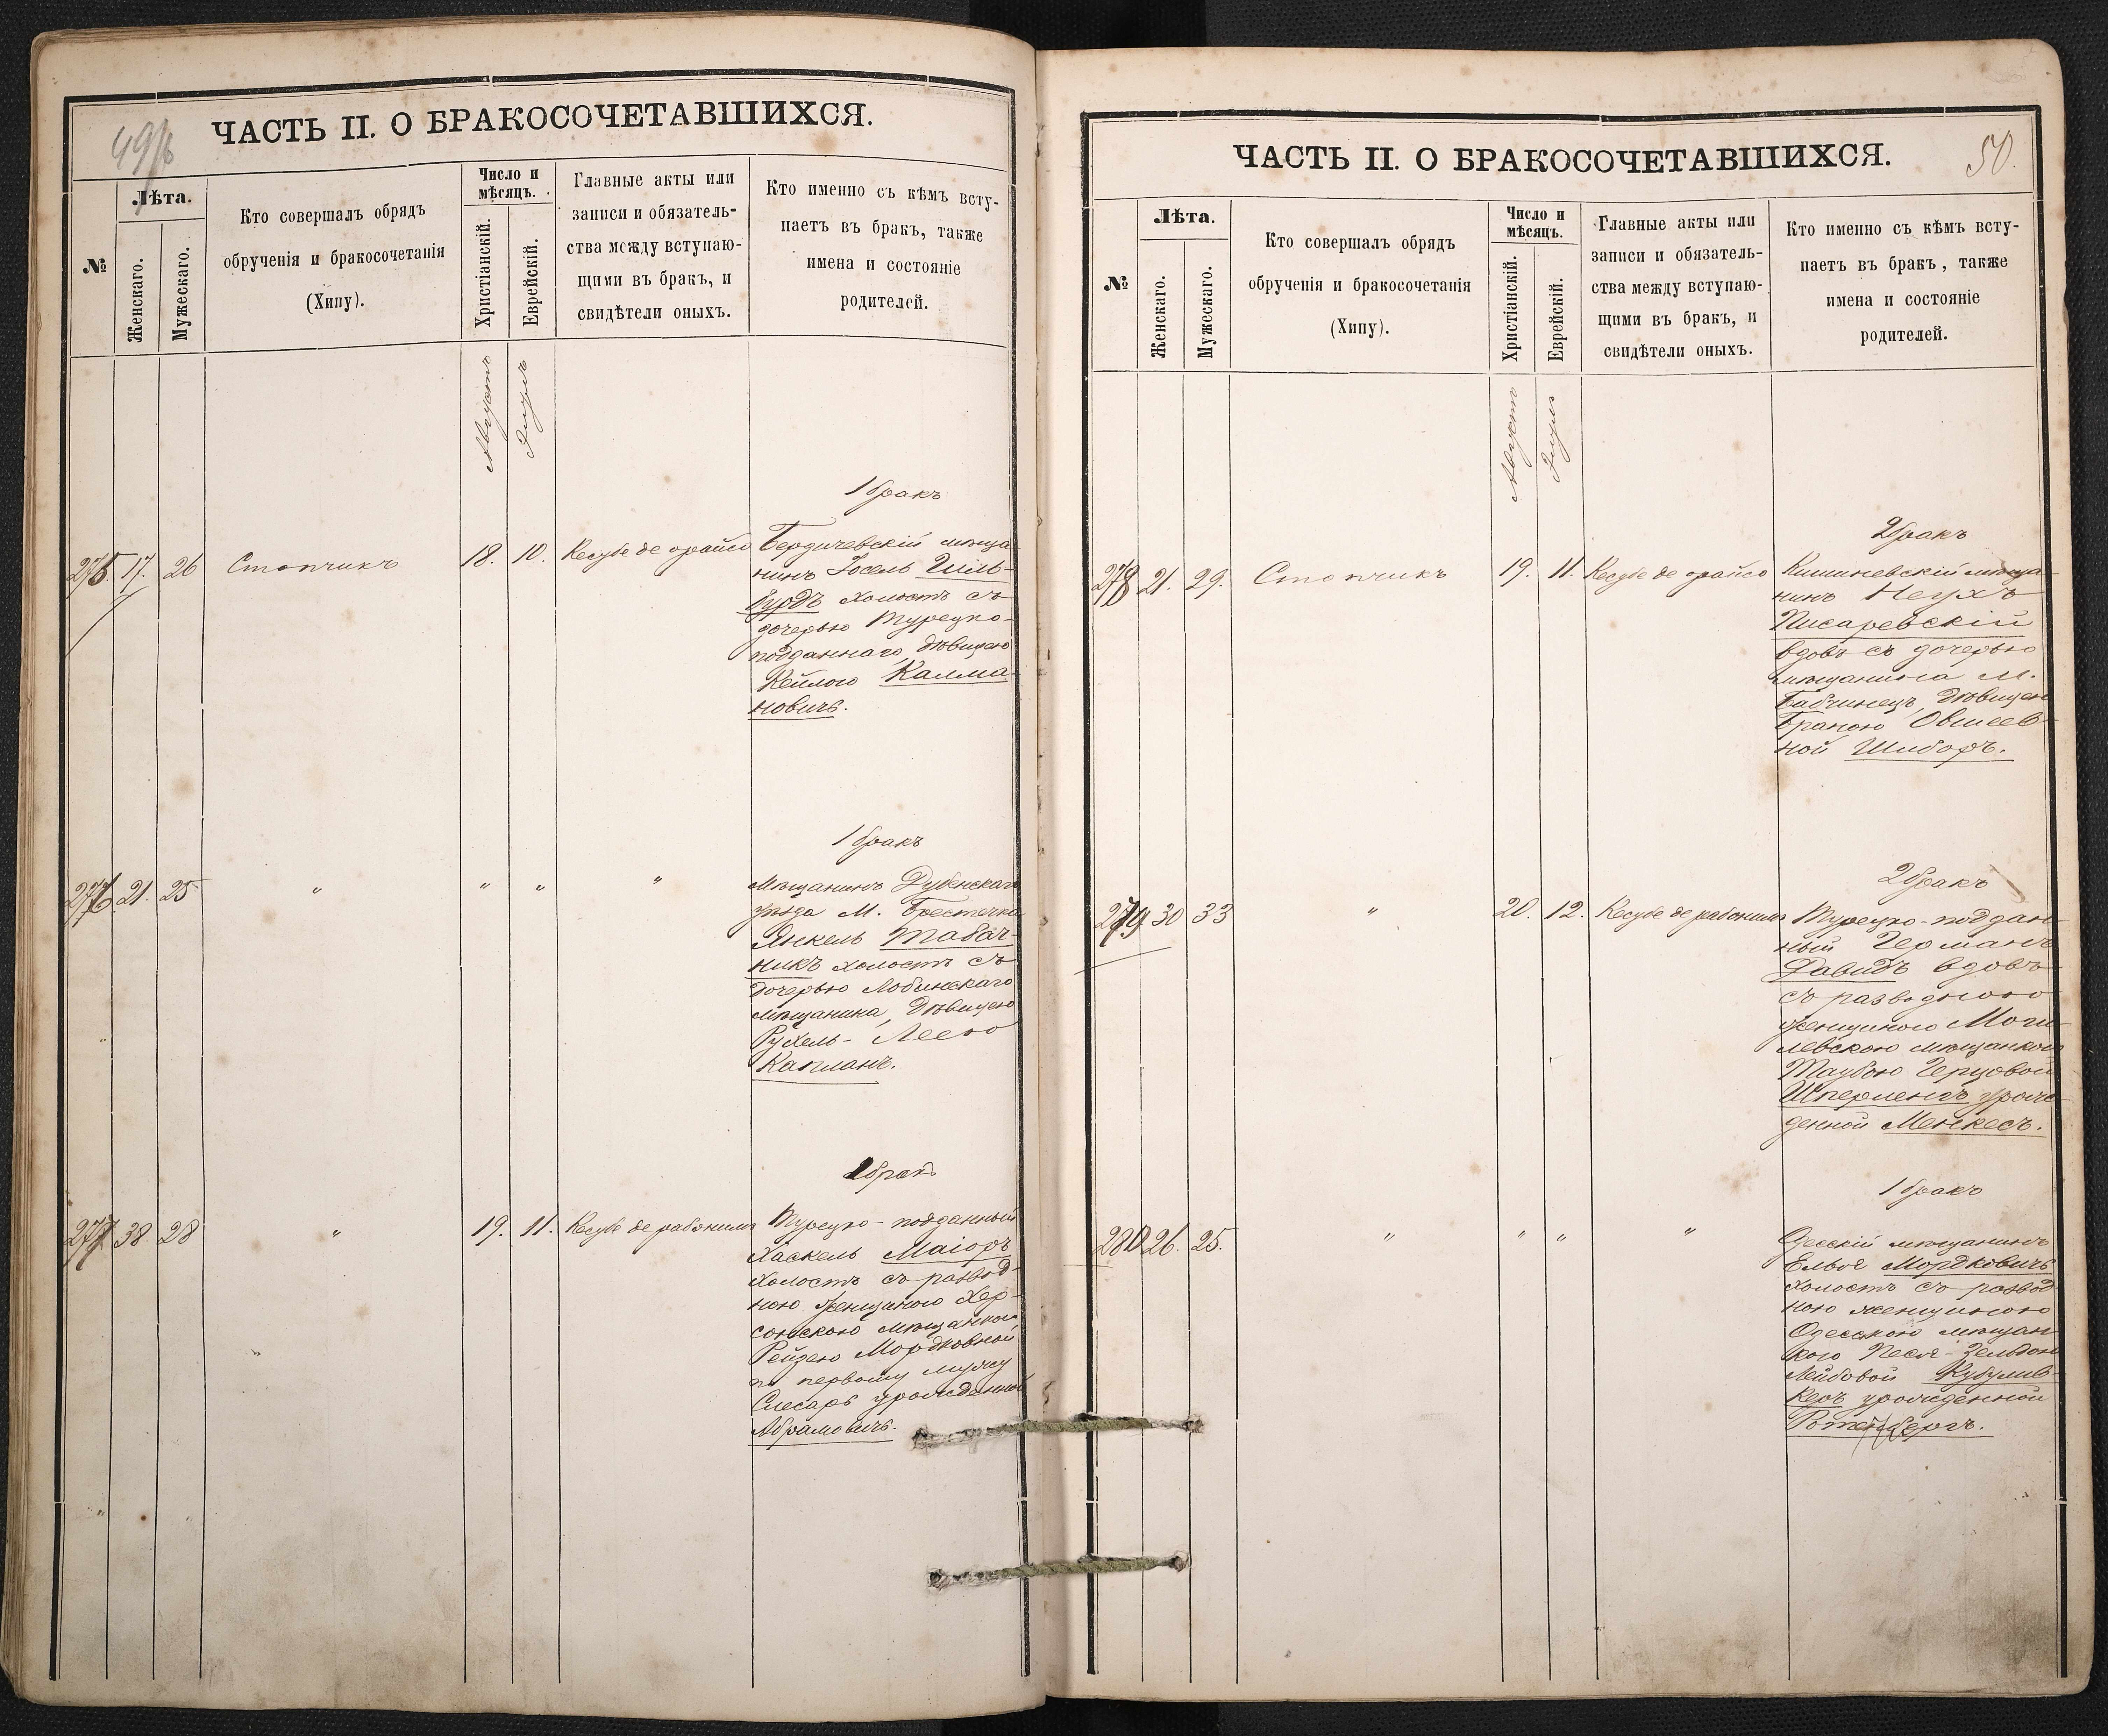 49/б
ЧАСТЬ II. О БРАКОСОЧЕТАВШИХСЯ.
№
Лѣта.
Женскаго.
Мужескаго.
Кто совершалъ обрядъ
обрученія и бракосочетанія
(Хипу).
Число и
мѣсяцъ.
Христіанскій.
Еврейскій.
Главные акты или
записи и обязатель-
ства между вступаю-
щими въ бракъ, и
свидѣтели оныхъ.
Кто именно съ кѣмъ всту-
паетъ въ бракъ, также
имена и состояніе
родителей.
Августъ
Элулъ
1 бракъ
275. 17. 26 Стопчикъ 18. 10. Кесубе де орайсо Бердичевскій мѣща-
нинъ Іосель Гиль-
бурдъ холостъ съ
дочерью Турецко-
подданнаго, дѣвицею
Кейлою Калма-
новичъ.
1 бракъ
276. 21. 25 " " " " Мѣщанинъ Дубенскаго
уѣзда М. Берестечка
Янкель Табач-
никъ холостъ съ
дочерью
мѣщанина, дѣвицею
Рухель-Леею
Капланъ.
бракъ
277 38. 28 " 19. 11. Кесубе де рабонимъ Турецко-подданный
Хаскель Маіоръ
холостъ съ развод-
ною женщиною Хер-
сонскою мѣщанкою
Рейзею Мордковной
по первому мужу
Слесарь урожденной
Абрамовичъ.
50.
ЧАСТЬ II. О БРАКОСОЧЕТАВШИХСЯ.
№
Лѣта.
Женскаго.
Мужескаго.
Кто совершалъ обрядъ
обрученія и бракосочетанія
(Хипу).
Число и
мѣсяцъ.
Христіанскій.
Еврейскій.
Главные акты или
записи и обязатель-
ства между вступаю-
щими въ бракъ, и
свидѣтели оныхъ.
Кто именно съ кѣмъ всту-
паетъ въ бракъ, также
имена и состояніе
родителей.
Августъ
Элулъ
2 бракъ
278 21. 29. Стопчикъ 19. 11. Кесубе де орайсо Кишиневскій мѣща-
нинъ Неухъ
Писаревскій
вдовъ съ дочерью
мѣщанина М.
Бабчинецъ, дѣвицею
Браною Овшеев-
ной
2 бракъ
279 30 33 " 20. 12. Кесубе де рабонимъ Турецко-поддан-
ный Германъ
Давидъ вдовъ
съ разводною
женщиною Моги-
левскою мѣщанкою
Таубою Герцовой
Шперлингъ урож-
денной Менкесъ.
1 бракъ
280 26. 25. " " " " Одесскій мѣщанинъ
Ельог Мордковичъ
холостъ съ развод-
ною женщиною
Одесскою мѣщан-
кою Песя-Зельдою
Лейбовой Кубулив-
керъ урожденной
Ротенбергъ.